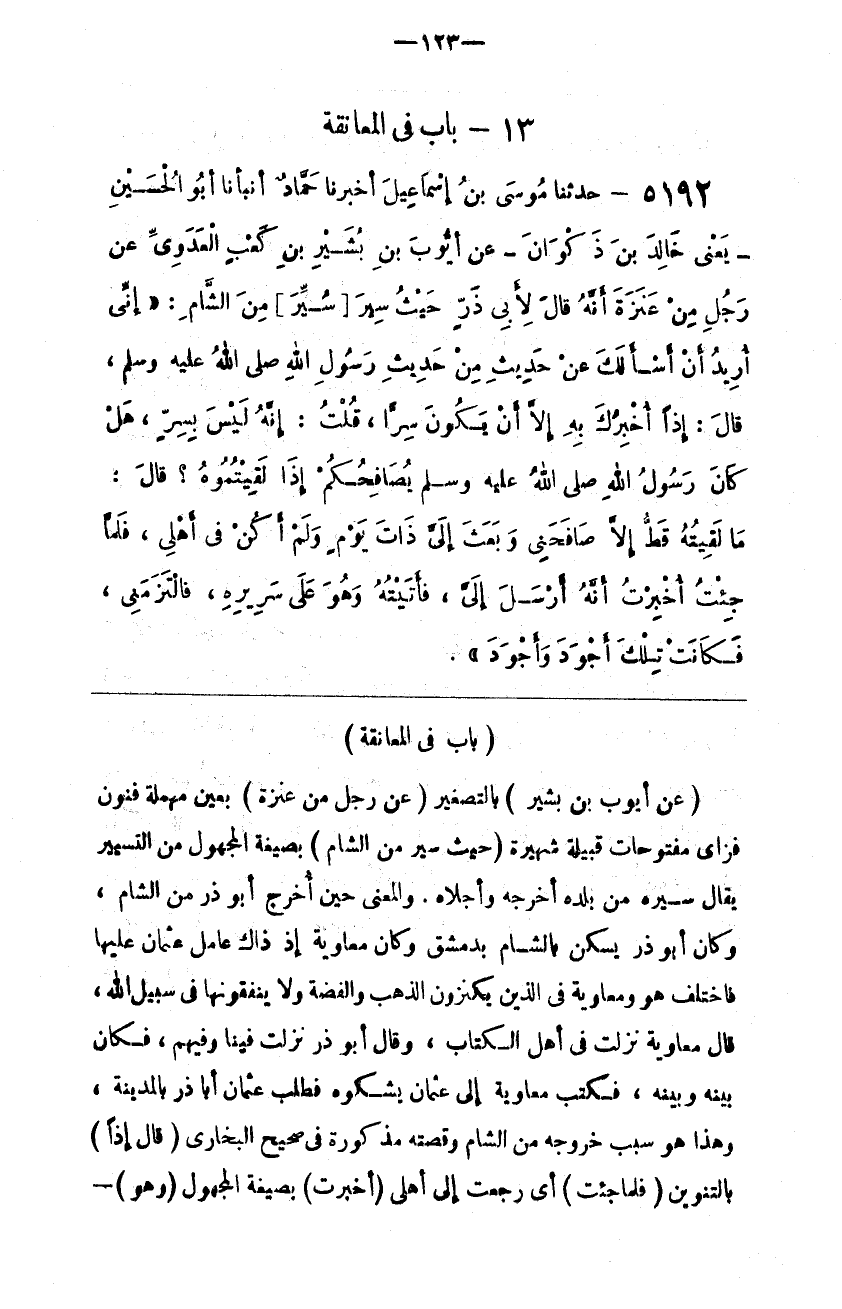 —١٢٣—
١٣ – باب فى المعانقة
٥١٩٢ – حدثنا مُوسَى بنُ إِسْمَاعِيلَ أخبرنا حَمَّادٌ أنبأنا أبُو الْحُسَيْنِ
ـ يَعْنى خَالِدَ بنَ ذَكْوَانَ ـ عن أيُّوبَ بنِ بُشَيْرِ بنِ كَعْبٍ الْعَدَوِىِّ عن
رَجُلٍ مِنْ عَنَزَةَ أَنَّهُ قالَ لِأَبِي ذَرٍّ حَيْثُ سِيرَ [سُيِّرَ] مِنَ الشَّامِ : « إِنِّى
أُرِيدُ أَنْ أَسْأَلَكَ عنْ حَدِيثٍ مِنْ حَدِيثِ رَسُولِ اللهِ صلى اللهُ عليه وسلم ،
قالَ : إِذاً أُخْبِرُكَ بِهِ إِلاَّ أَنْ يَكُونَ سِرًّا ، قُلْتُ : إِنَّهُ لَيْسَ بِسِرٍّ ، هَلْ
كَانَ رَسُولُ اللهِ صلى اللهُ عليه وسلم يُصَافِحُكُمْ إِذَا لَقِيتُمُوهُ ؟ قالَ :
مَا لَقِيتُهُ قَطُّ إِلاَّ صَافَحَنِى وَبَعَثَ إِلَىَّ ذَاتَ يَوْمٍ وَلَمْ أَكُنْ فى أَهْلِى ، فَلَمَّا
جِئْتُ أُخْبِرْتُ أَنَّهُ أَرْسَلَ إِلَىَّ ، فأَتَيْتُهُ وَهُوَ عَلَى سَرِيرِهِ ، فالْتَزَمَنِى ،
فَكَانَتْ تِلْكَ أَجْوَدَ وَأَجْوَدَ » .
( باب فى المعانقة )
( عن أيوب بن بشير ) بالتصغير ( عن رجل من عنزة ) بعين مهملة فنون
فزاى مفتوحات قبيلة شهيرة (حيث سير من الشام ) بصيغة المجهول من التسيير
يقال سيره من بلده أخرجه وأجلاه . والمعنى حين أُخرج أبو ذر من الشام ،
وكان أبو ذر يسكن بالشام بدمشق وكان معاوية إذ ذاك عامل عثمان عليها
فاختلف هو ومعاوية فى الذين يكنزون الذهب والفضة ولا ينفقونها فى سبيل الله ،
قال معاوية نزلت فى أهل الكتاب ، وقال أبو ذر نزلت فينا وفيهم ، فكان
بينه وبينه ، فكتب معاوية إلى عثمان يشكوه فطلب عثمان أبا ذر بالمدينة ،
وهذا هو سبب خروجه من الشام وقصته مذكورة فى صحيح البخارى ( قال إذاً )
بالتنوين ( فلما جئت ) أى رجعت إلى أهلى (أخبرت) بصيغة المجهول (وهو )—